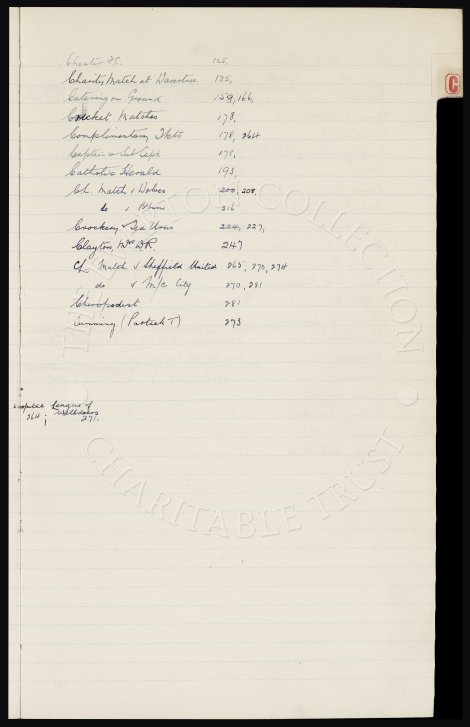 C
Chester F.C. 125,
Charity Match at Wavertree 135,
Catering on Ground 159, 166,
Cricket Matches 178,
Complimentary Tkts 178, 264
Captain & Sub Capt 178,
Catholic Herald 193,
Ch. Match v Wolves 200, 208,
do v B'ham 216
Crockery & Tea Urns 224, 227,
Clayton, Mrs D.R. 247
Ch. Match v Sheffield United 265, 270, 274
do v M/c City 270, 281
Chiropodist 281
Cumming (Partick T) 273
League of
Welldoers
264; 271.
THE EVERTON COLLECTION
CHARITABLE TRUST